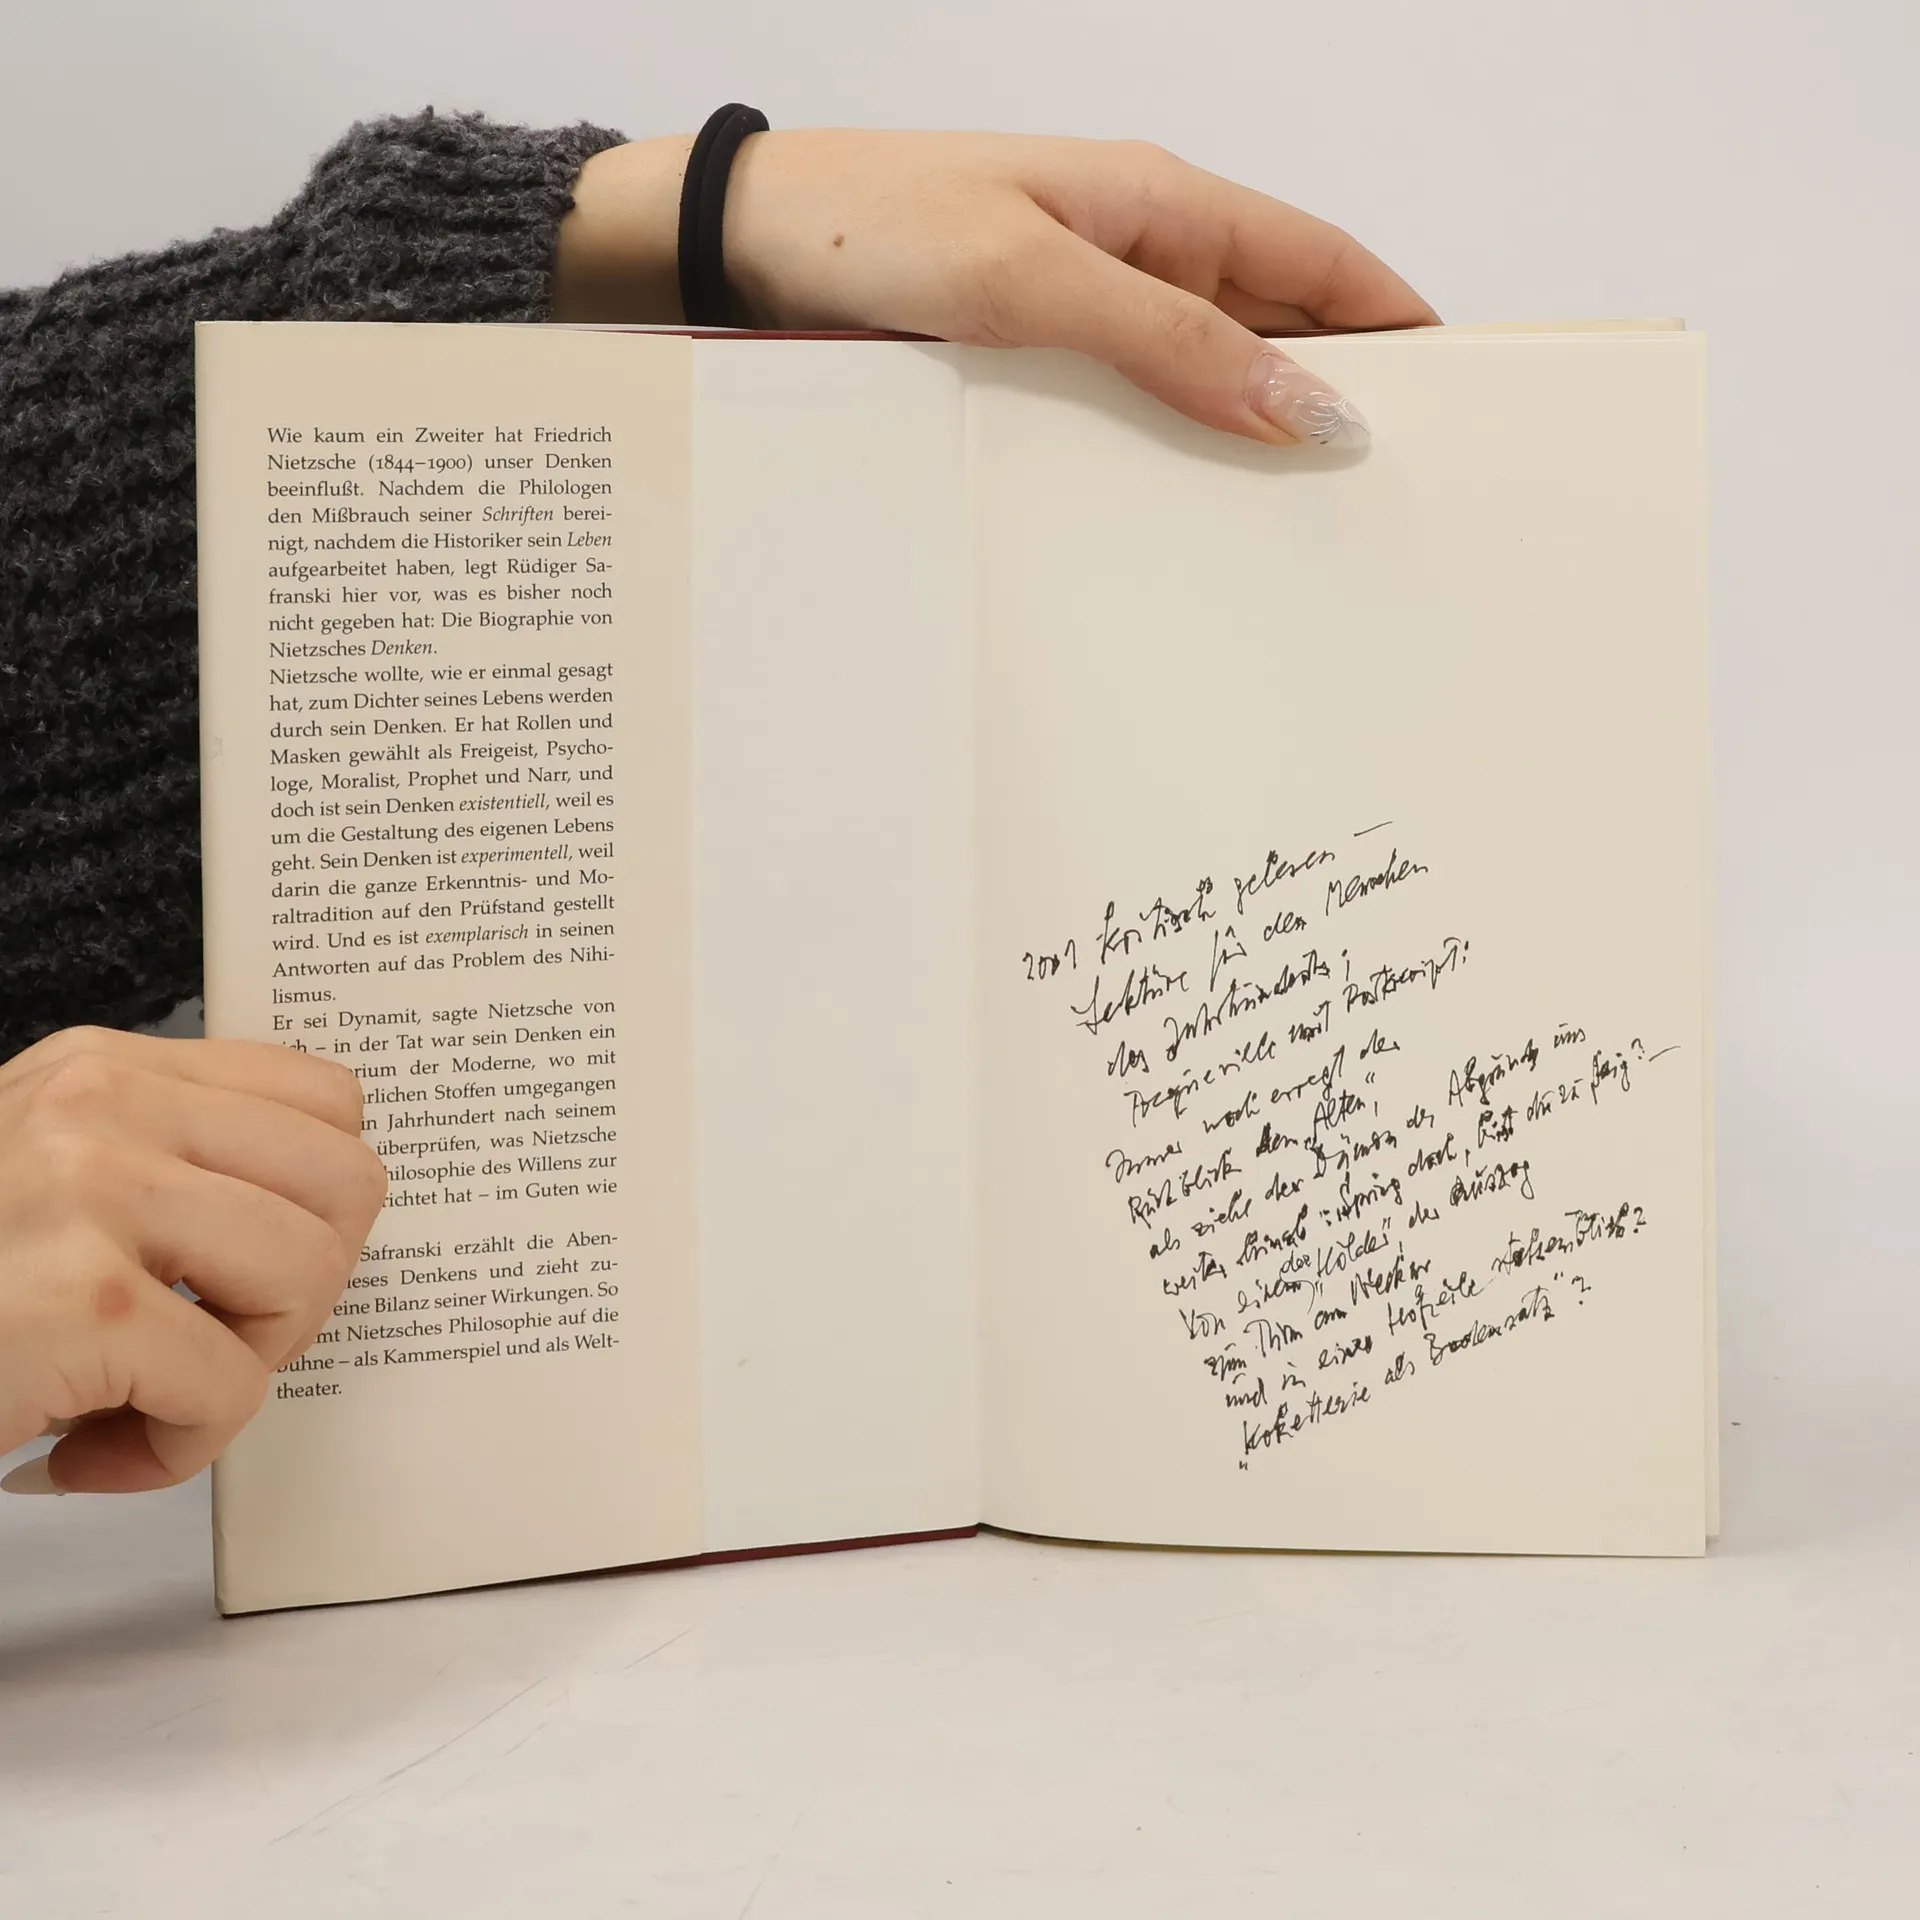 Wie kaum ein Zweiter hat Friedrich
Nietzsche (1844–1900) unser Denken
beeinflußt. Nachdem die Philologen
den Mißbrauch seiner Schriften berei-
nigt, nachdem die Historiker sein Leben
aufgearbeitet haben, legt Rüdiger Sa-
franski hier vor, was es bisher noch
nicht gegeben hat: Die Biographie von
Nietzsches Denken.
Nietzsche wollte, wie er einmal gesagt
hat, zum Dichter seines Lebens werden
durch sein Denken. Er hat Rollen und
Masken gewählt als Freigeist, Psycho-
loge, Moralist, Prophet und Narr, und
doch ist sein Denken existentiell, weil es
um die Gestaltung des eigenen Lebens
geht. Sein Denken ist experimentell, weil
darin die ganze Erkenntnis- und Mo-
raltradition auf den Prüfstand gestellt
wird. Und es ist exemplarisch in seinen
Antworten auf das Problem des Nihi-
lismus.
Er sei Dynamit, sagte Nietzsche von
ich – in der Tat war sein Denken ein
rium der Moderne, wo mit
rlichen Stoffen umgegangen
in Jahrhundert nach seinem
überprüfen, was Nietzsche
hilosophie des Willens zur
richtet hat – im Guten wie
Safranski erzählt die Aben-
ieses Denkens und zieht zu-
eine Bilanz seiner Wirkungen. So
mt Nietzsches Philosophie auf die
bühne – als Kammerspiel und als Welt-
theater.
2001 kritisch gelesen –
Lektüre für den Menschen
des Jahrhunderts;
mit Postscript:
Immer noch erregt der
Rückblick den "Alten,"
als ziehe der Dämon des Abgrunds uns
weiter hinab: "Spring doch, bist du zu feig?" –
Von "Hölder", der Auszug
zum Turm am Neckar
und in einer
"Koketterie als Bodensatz"?